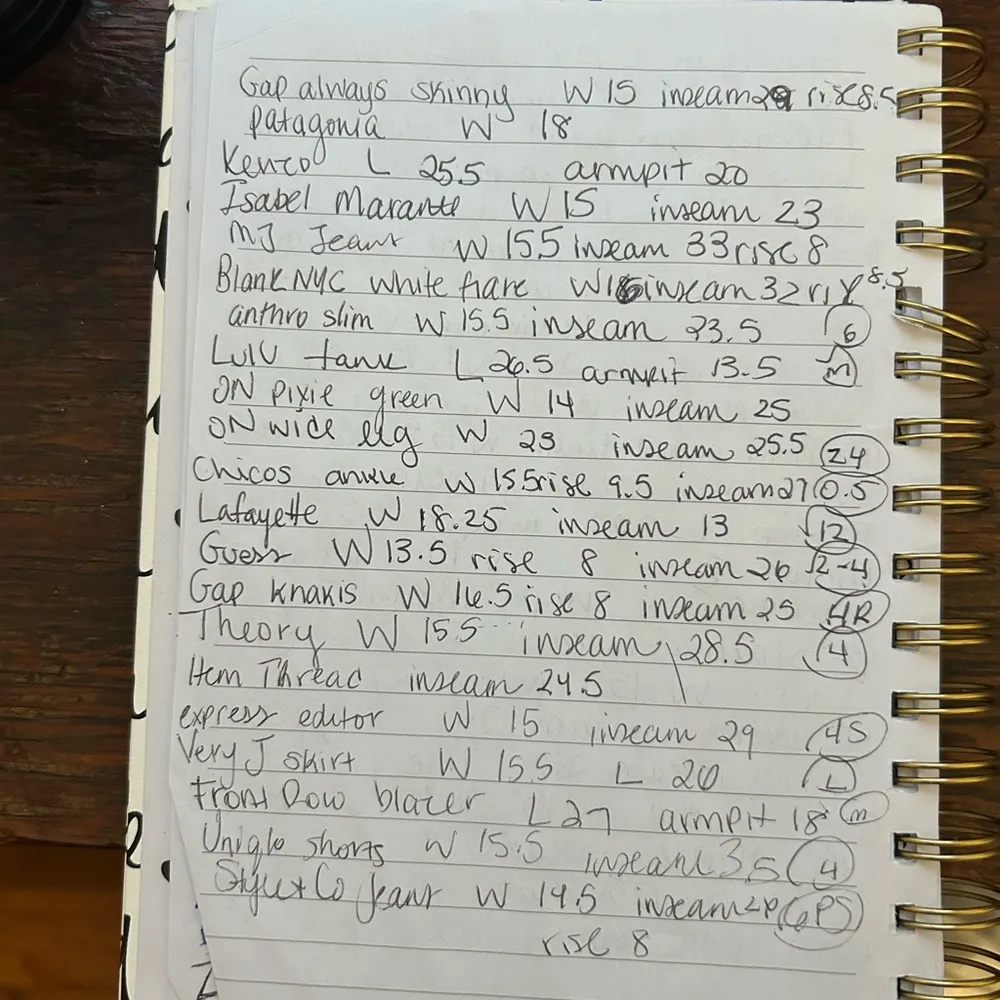 Gap always skinny W 15 inseam 29 rise 8.5
patagonia W 18
Kenzo L 25.5 armpit 20
Isabel Marante W 15 inseam 23
MJ Jeans W 15.5 inseam 33 rise 8
Blank NYC white flare W 16 inseam 32 rise 8.5
anthro slim W 15.5 inseam 23.5 6
Lulu tank L 26.5 armpit 13.5 m
ON pixie green W 14 inseam 25
ON wide leg W 23 inseam 25.5 24
Chicos ankle W 15.5 rise 9.5 inseam 27 0.5
Lafayette W 18.25 inseam 13 12
Guess W 13.5 rise 8 inseam 26 2-4
Gap khakis W 16.5 rise 8 inseam 25 4R
Theory W 15.5 inseam 28.5 4
Hem Thread inseam 24.5
express editor W 15 inseam 29 4S
Very J skirt W 15.5 L 20 L
Front Row blazer L 27 armpit 18 m
Uniqlo shorts W 15.5 inseam 3.5 4
Style + Co Jeans W 14.5 inseam 6PS
rise 8